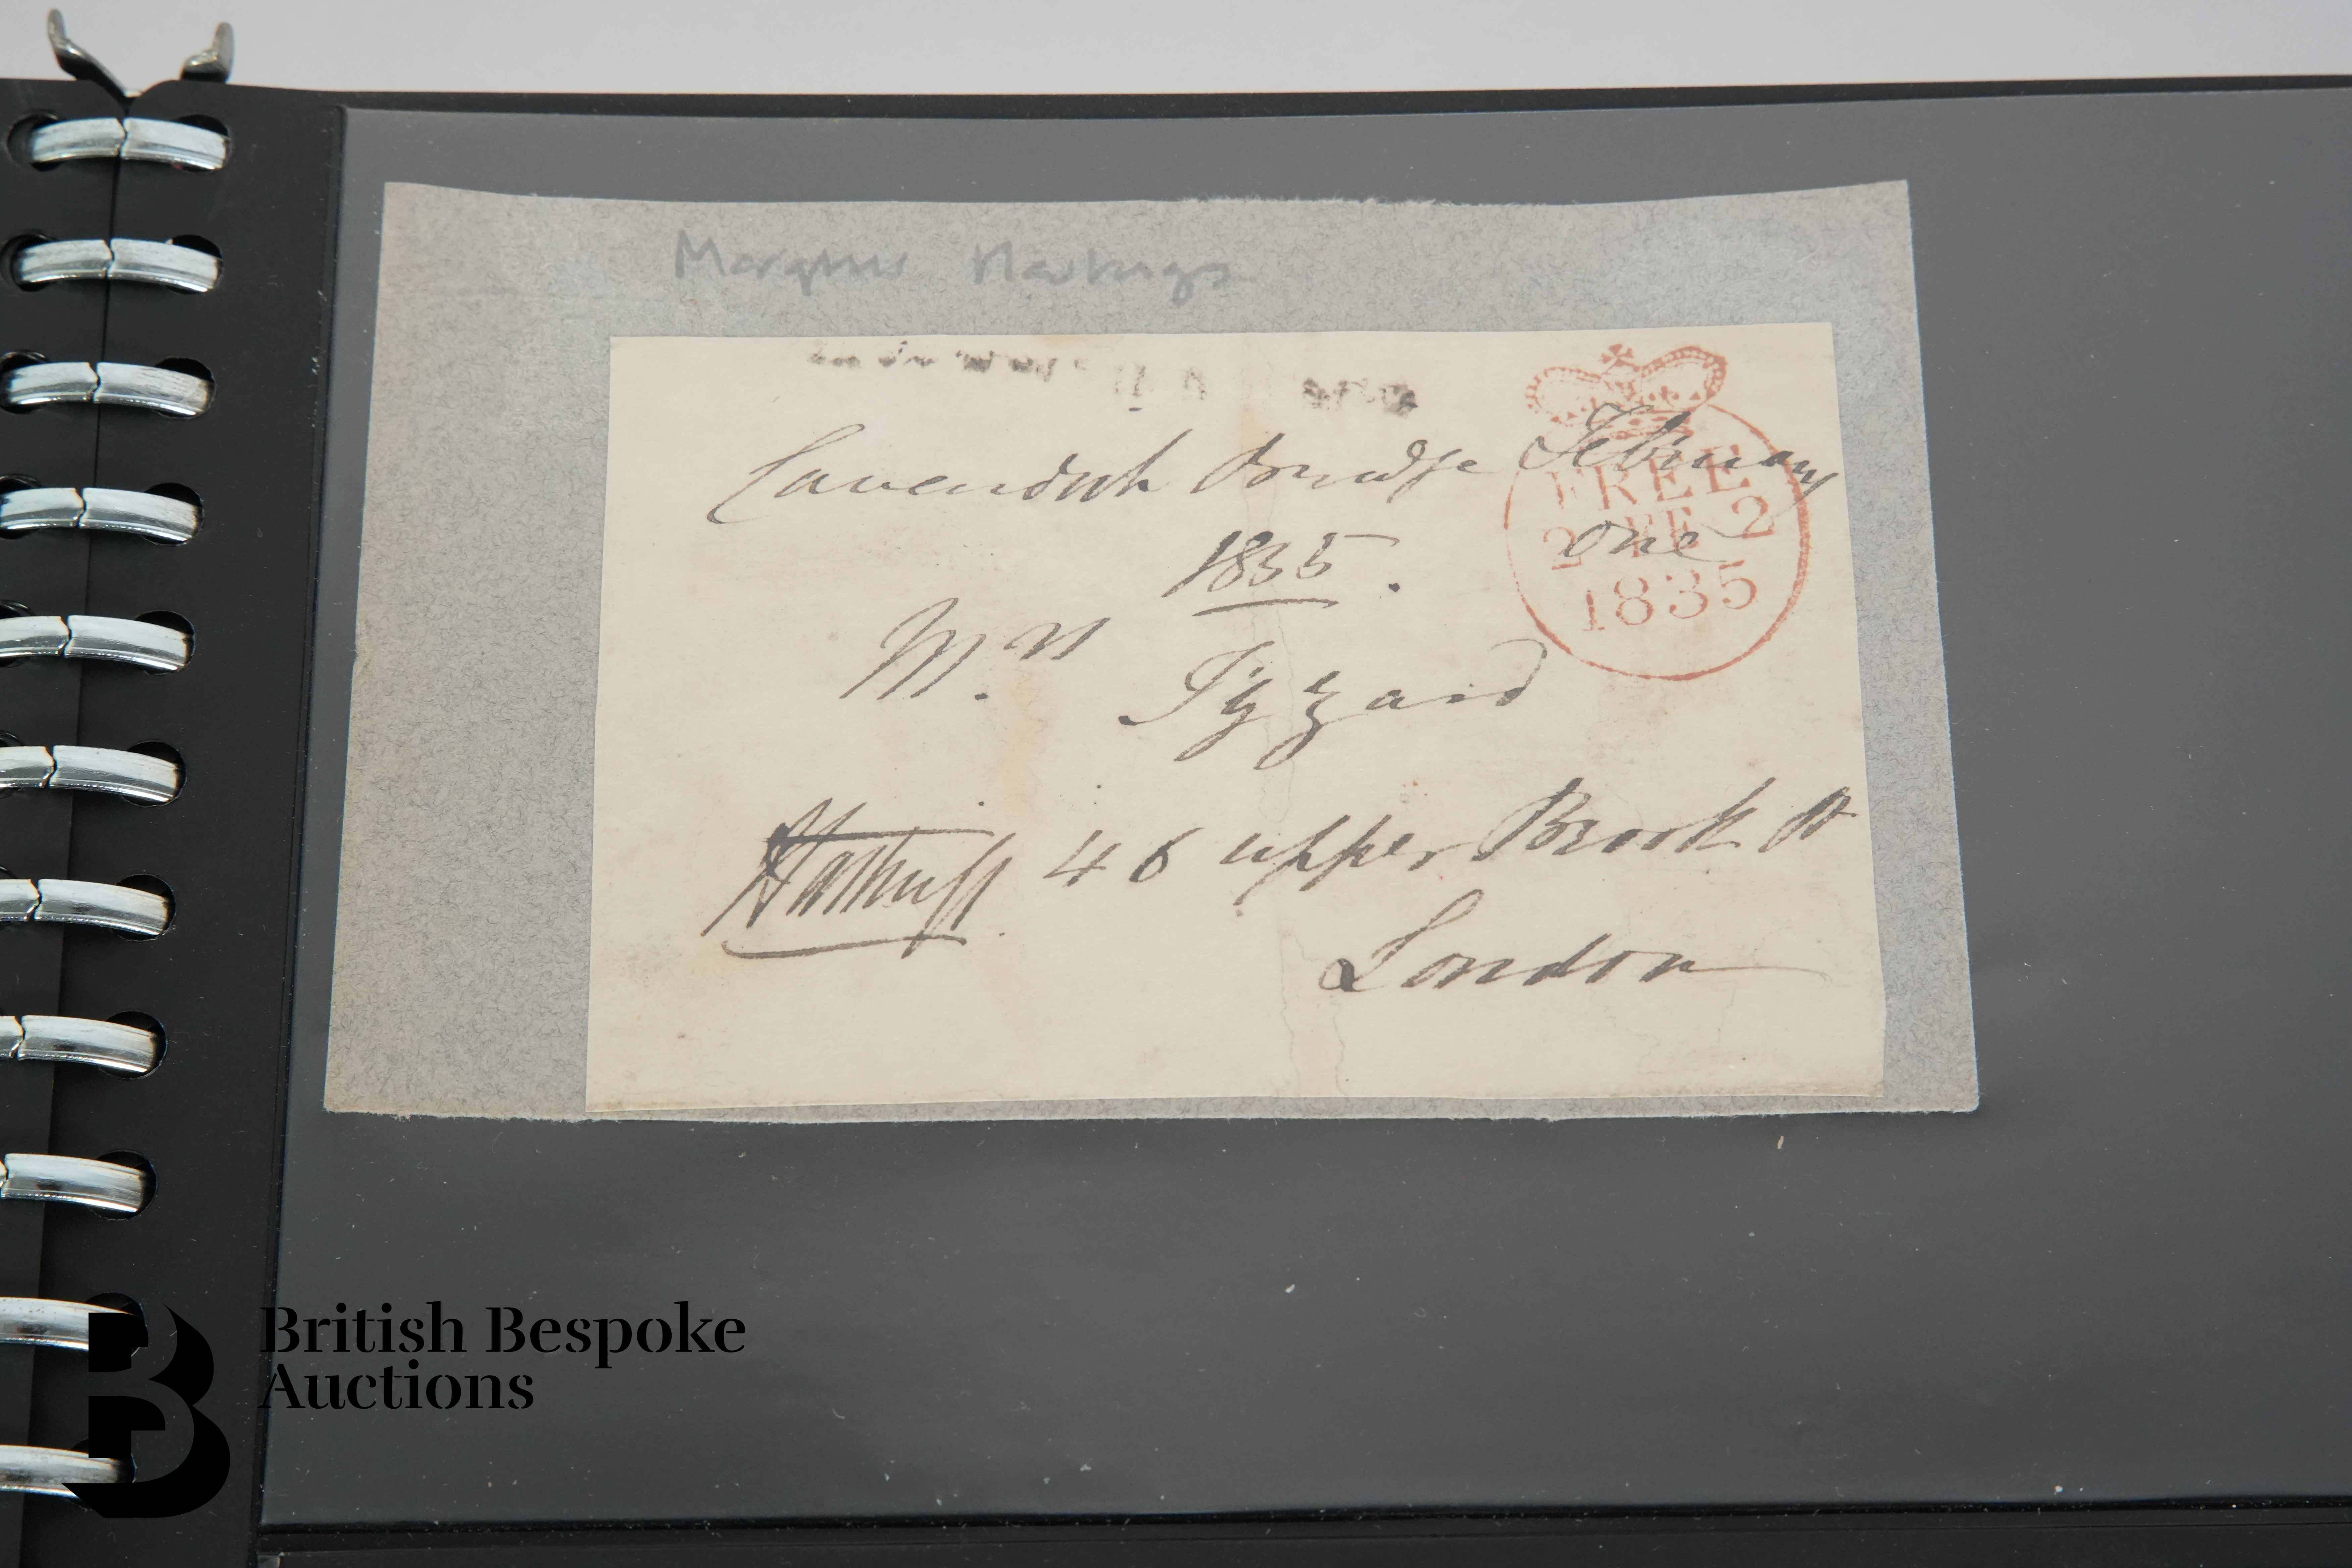 Marquis Hastings
Cavendish Bridge February
one
1835.
FREE
2 FE 2
1835
Mrs Tizzard
Hastings 46 upper Brook St
London
British Bespoke
Auctions